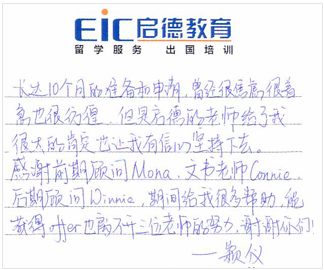 EIC启德教育
留学服务 出国培训
长达10个月的准备和申请,曾经很焦虑很着
急也很彷徨,但是启德的老师给了我
很大的肯定也让我有信心坚持下去。
感谢前期顾问Mona,文书老师Connie,
后期顾问Winnie,期间给我很多帮助,能
获得offer也离不开三位老师的努力,谢谢你们!
——颖仪